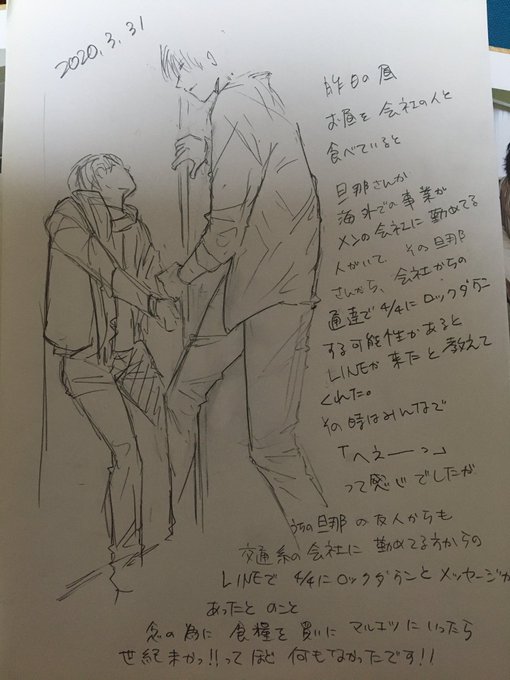 2020.3.31
昨日の昼
お昼を会社の人と
食べていると
旦那さんが
海外での事業が
メンの会社に勤めてる
人がいて、その旦那
さんから、会社からの
通達で4/4にロックダウン
する可能性があると
LINEが来たと教えて
くれた。
その時はみんなで
「へえーっ」
って感じでしたが
うちの旦那の友人からも
交通系の会社に勤めてる方からの
LINEで4/4にロックダウンとメッセージが
あったとのこと
念の為に食糧を買いにマルエツにいったら
世紀末かっ!!ってほど何もなかったです!!